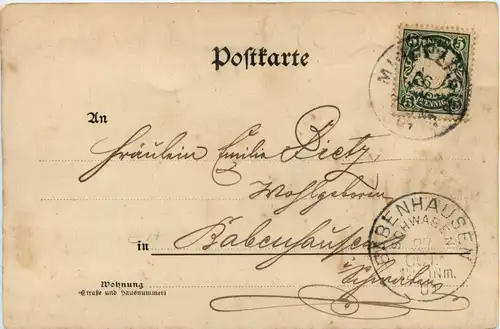 Postkarte
BAYERN
5 5
PFENNIG
An
Fräulein Emilie Dietz
Wohlgeboren
in Babenhausen
Schwaben
BABENHAUSEN
SCHWABEN
Nm.
Wohnung
(Straße und Hausnummer)